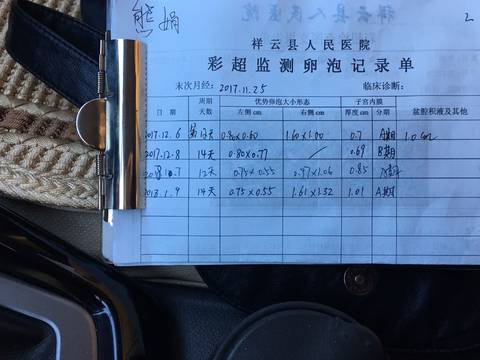 熊娟
祥云县人民医院
2
祥云县人民医院
彩超监测卵泡记录单
末次月经: 2017.11.25 临床诊断:
日期 周期天数 优势卵泡大小形态 子宫内膜 盆腔积液及其他
左侧cm 右侧cm 厚度cm 分期
2017.12.6 第12天 0.80×0.60 1.60×1.00 0.7 A期
2017.12.8 14天 0.80×0.77 / 0.69 B期
12天 0.75×0.55 0.97×1.06 0.85
2018.1.9 14天 0.75×0.55 1.61×1.32 1.01 A期